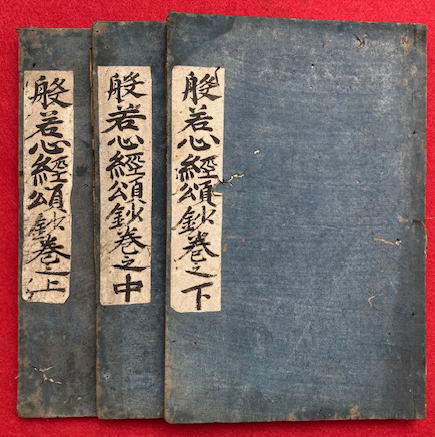 般若心經頌鈔巻之上
般若心經頌鈔巻之中
般若心經頌鈔巻之下